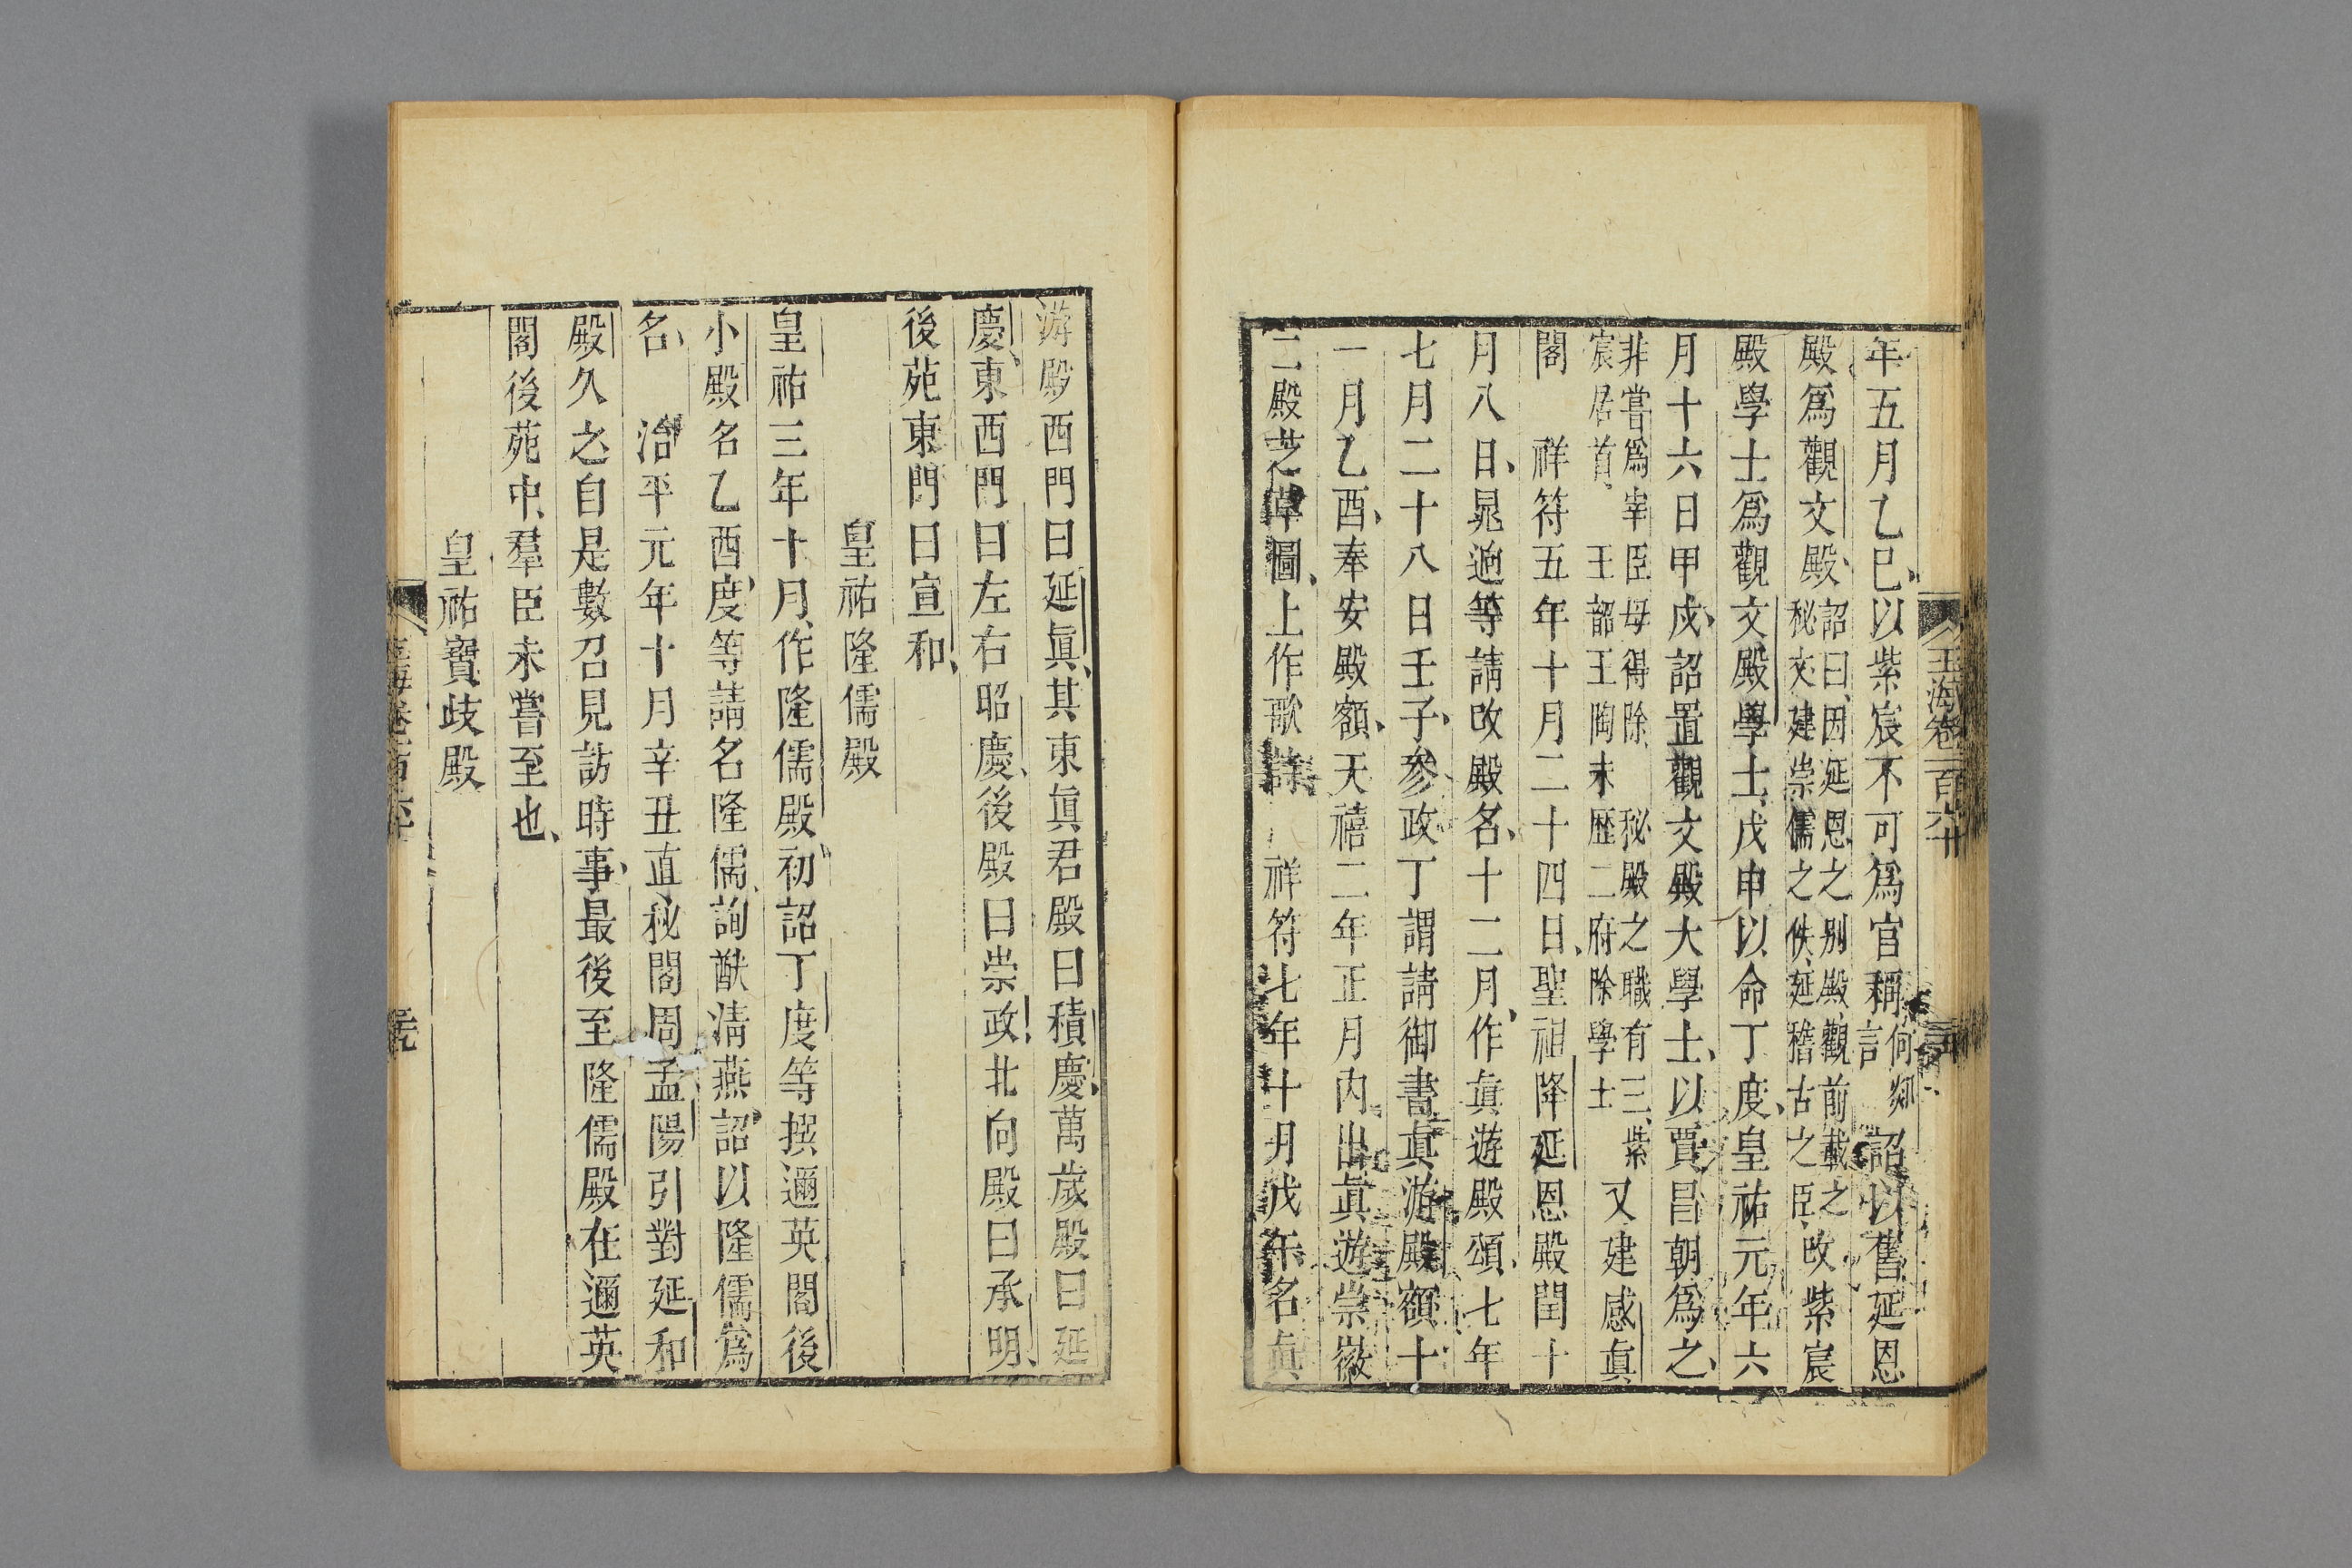 玉海卷一百六十
年五月乙巳以紫宸不可爲官稱何郯言詔以舊延恩
殿爲觀文殿詔曰因延恩之別殿觀前載之秘文建崇儒之佚延稽古之臣改紫宸
殿學士爲觀文殿學士戊申以命丁度皇祐元年六
月十六日甲戌詔置觀文殿大學士以賈昌朝爲之
非嘗爲宰臣毋得除 秘殿之職有三紫宸居首 王韶王陶未歷二府除學士 又建感眞
閣 祥符五年十月二十四日聖祖降延恩殿閏十
月八日晁逈等請改殿名十二月作眞遊殿頌七年
七月二十八日壬子參政丁謂請御書眞游殿額十
一月乙酉奉安殿額天禧二年正月內出眞遊崇徽
二殿芝草圖上作歌 祥符七年十月戊午名眞
游殿西門曰延眞其東眞君殿曰積慶萬歲殿曰延
慶東西門曰左右昭慶後殿曰崇政北向殿曰承明
後苑東門曰宣和
皇祐隆儒殿
皇祐三年十月作隆儒殿初詔丁度等撰邇英閣後
小殿名乙酉度等請名隆儒詢猷淸燕詔以隆儒爲
名 治平元年十月辛丑直秘閣周孟陽引對延和
殿久之自是數召見訪時事最後至隆儒殿在邇英
閣後苑中羣臣未嘗至也
皇祐寶歧殿